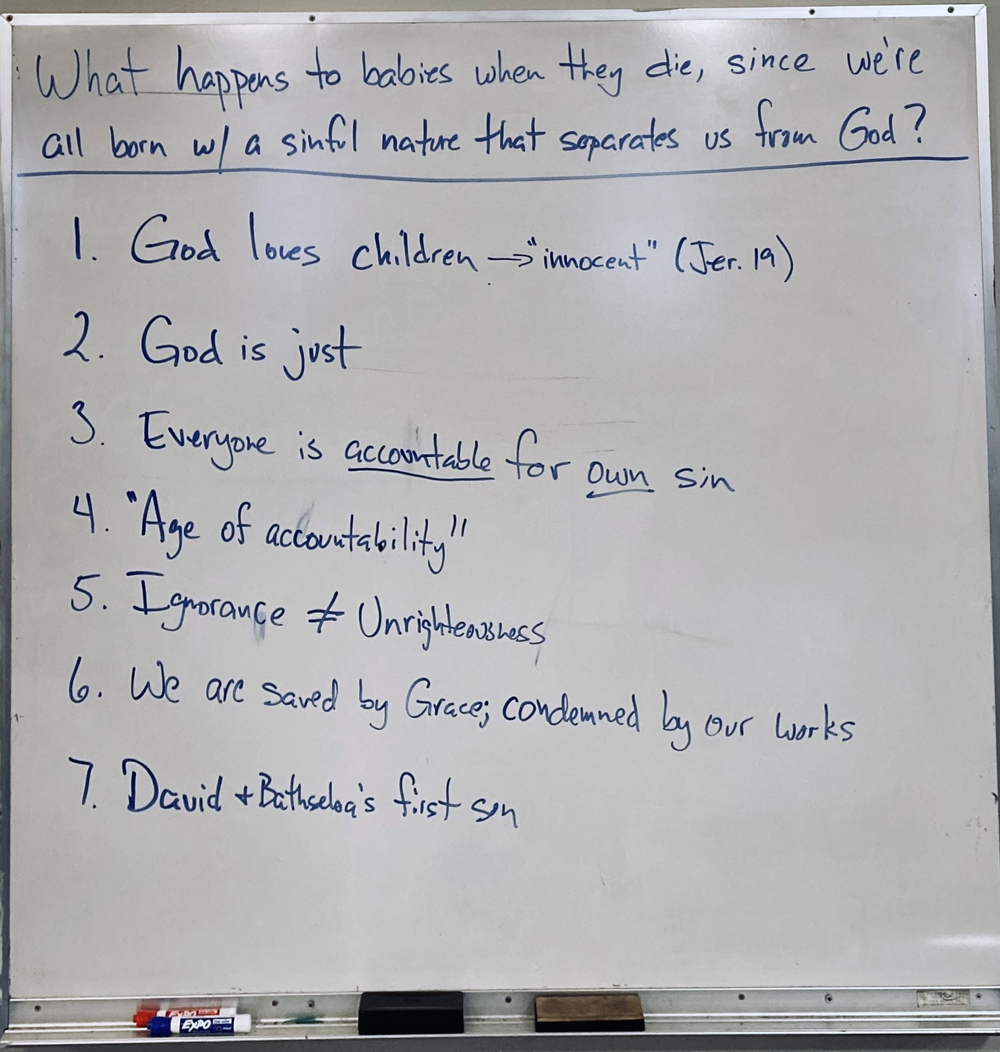 What happens to babies when they die, since we're
all born w/ a sinful nature that separates us from God?
1. God loves children → "innocent" (Jer. 19)
2. God is just
3. Everyone is accountable for own sin
4. "Age of accountability"
5. Ignorance ≠ Unrighteousness
6. We are saved by Grace; condemned by our works
7. David + Bathseba's first son
EXPO
EXPO